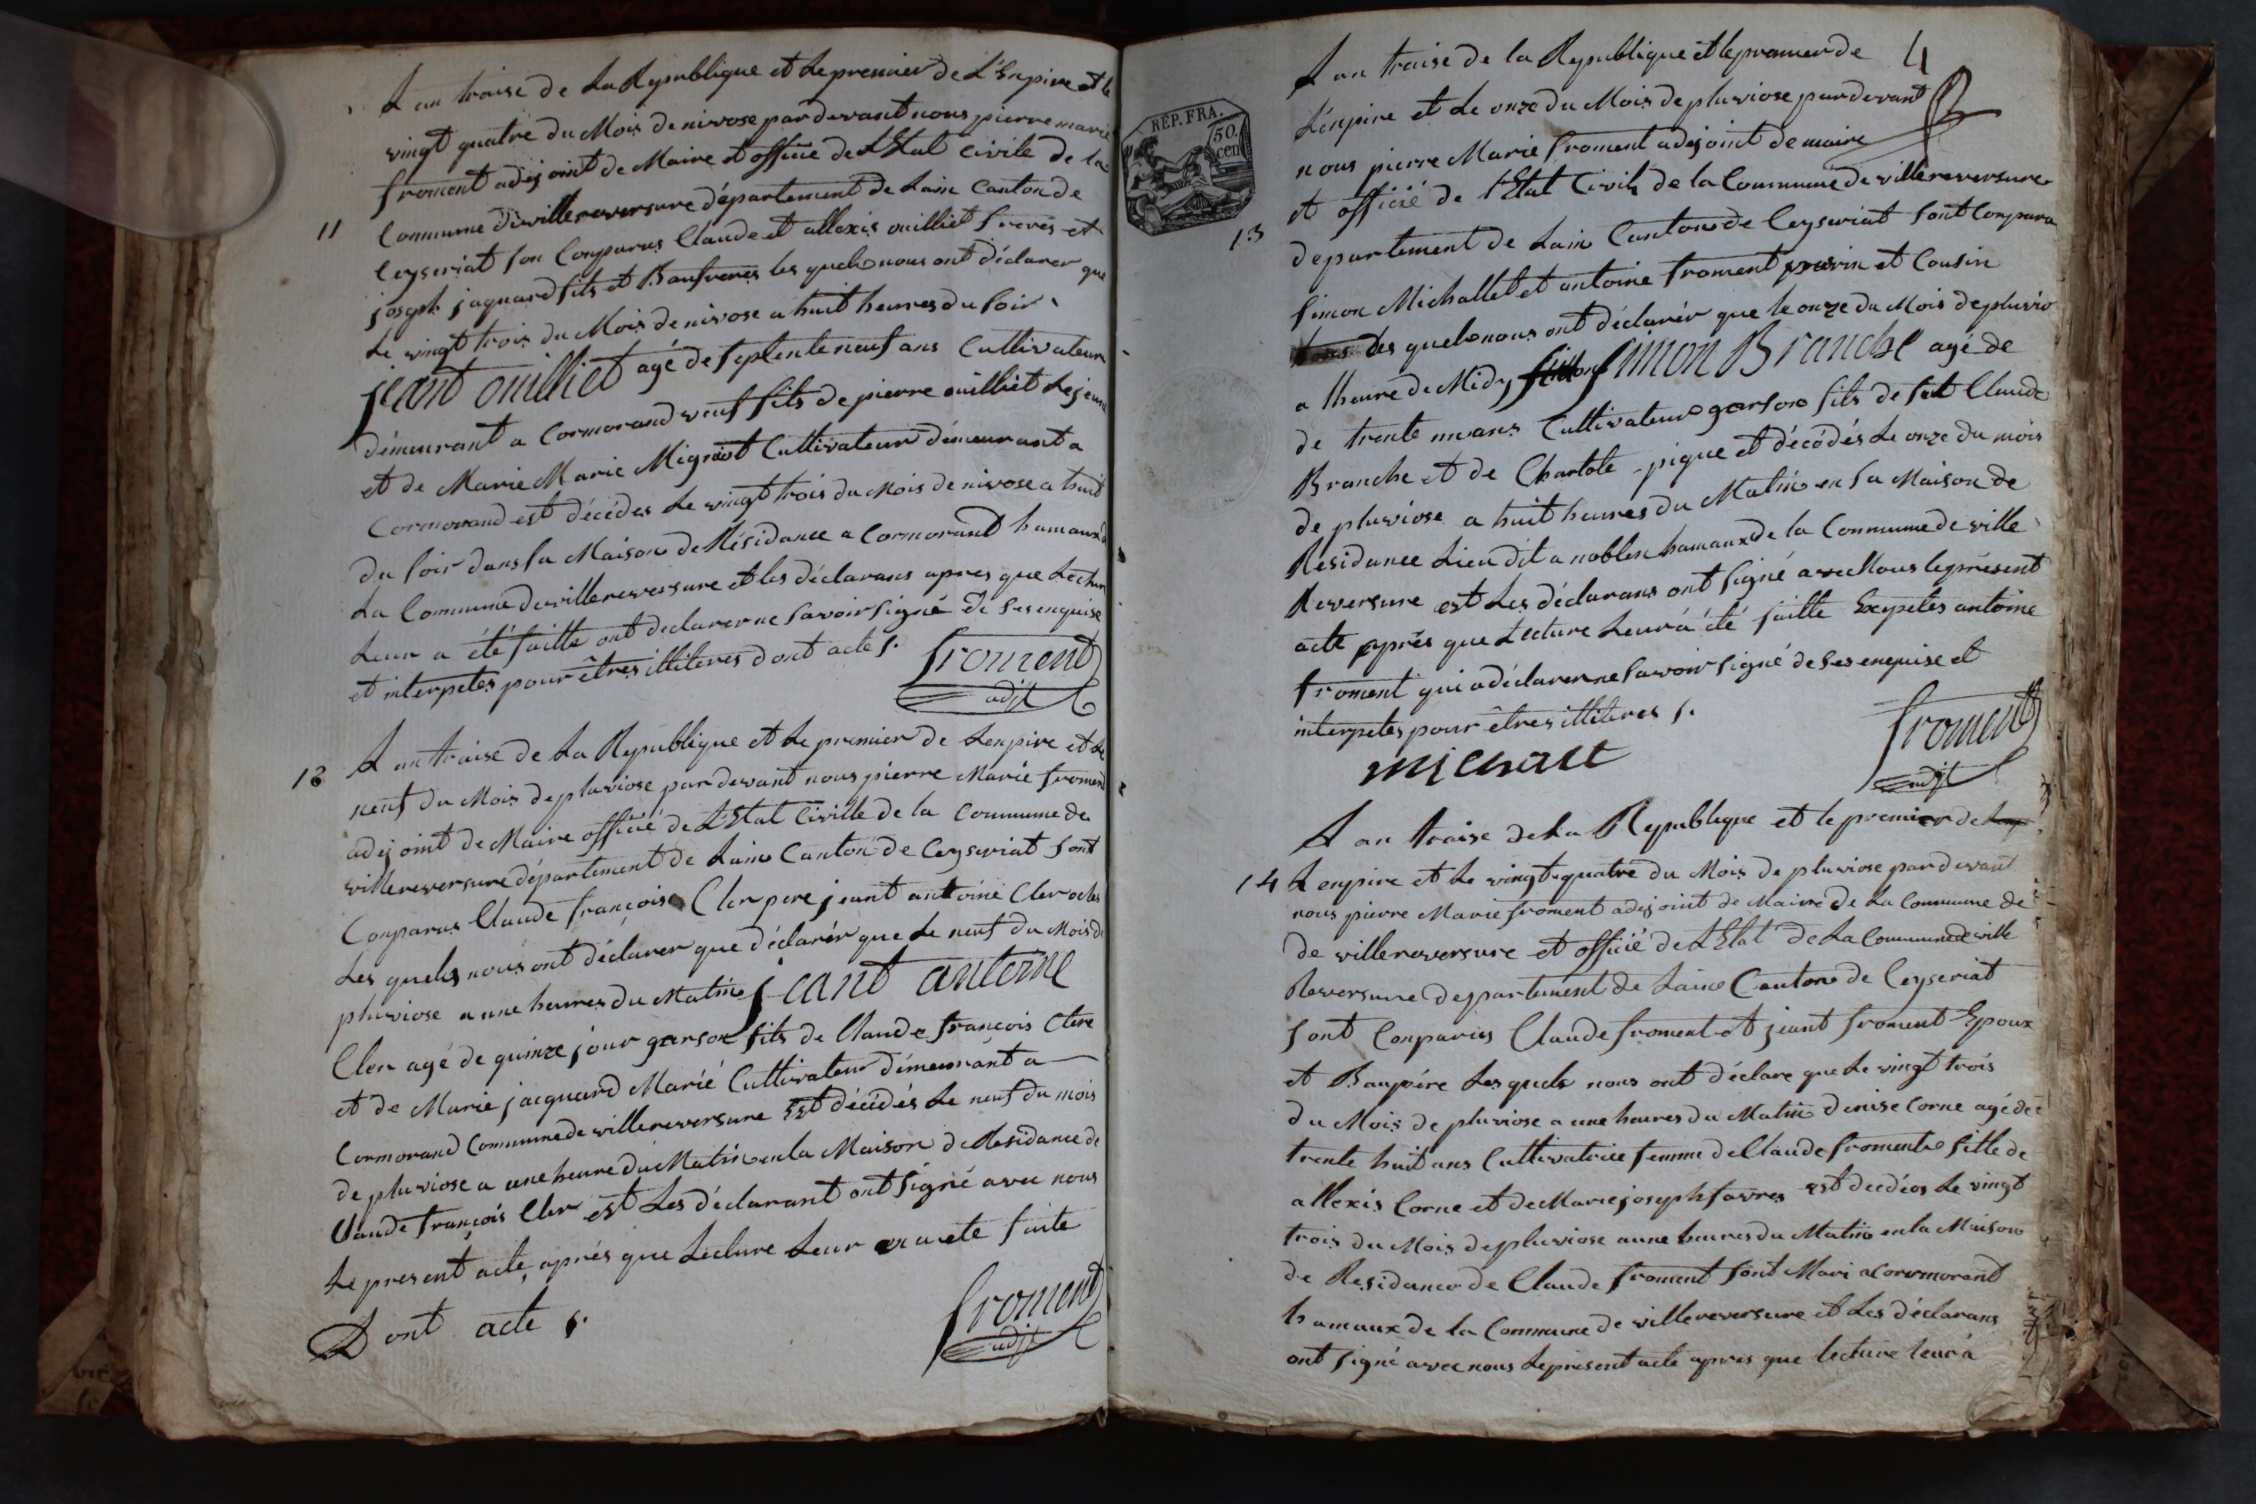 L'an traise de La Republique et Le premier de L'Enpire et le
vingt quatre du Mois de nivose par devant nous pierre marie
froment adejoint de Maire et officié de L'Etat Civile de la
11
Commune de villereversure département de Lain Canton de
Ceyseriat son Conparus Claude et allexis ouilliet freres et
joseph jaquard fils et Baufreres les quels nous ont déclarer que
Le vingt trois du Mois de nivose a huit heures du soir
jeant ouilliet agé de septente neuf ans Cultivateur
démeurant a Cormorand veuf fils de pierre ouilliet Le jeune
et de Marie Marie Migniot Cultivateur démeurant a
Cormorand est décédes Le vingt trois du Mois de nivose a huit
du soir dans sa Maison de Résidance a Cormorant hamaux d
La Commune de villereversure et les déclarans apres que Lecture
Leur a été faitte ont declarer ne savoir signé de ses enquise
et interpetes pour êtres illiteres dont acte s.
froment
adjt
12
L'an traise de La Republique et Le premier de Lenpire et Le
neuf du Mois de pluviose par devant nous pierre Marie froment
adejoint de Maire officié de L'Etat Civille de la Commune de
villereversure département de Lain Canton de Ceyseriat sont
Conparus Claude françois Cler pere jeant antoine Cler
Les quels nous ont déclarer que déclarér que Le neuf du Mois de
pluviose a une heures du Matin jeant antoine
Cler agé de quinze jour garson fils de Claude françois Clere
et de Marie jacquard Marié Cultivateur démeurant a
Cormorand Commune de villereversure Est décédés Le neuf du mois
de pluviose a une heure du Matin en la Maison de Residance de
Claude françois Cler est Les déclarant ont signé avec nous
Le present acte aprés que Lecture Leur a été faite
Dont acte s.
froment
adjt
L'an traise de la Republique et le premier de
4
REP. FRA.
50.
cen
Lénpire et Le onze du Mois de pluviose par devant
nous pierre Marie froment adejoint de maire
et officié de L'Etat Civile de la Commune de villereversure
13
departement de Lain Canton de Ceyseriat sont Conparu
simon Michallet et antoine froment et Cousin
Les quels nous ont déclarér que le onze du Mois de pluvio
a lheure de Midy simon Branche agé de
de trente ans Cultivateur garson fils de fut Claude
Branche et de Charlote pique et décédés Le onze du mois
de pluviose a huit heures du Matin en sa Maison de
Residance Lieu dit a noblen hamaux de la Commune de ville
Reversure est Les déclarans ont signé avec Nous le présent
acte aprés que Lecture Leur a été faitte Exeptes antoine
froment qui a déclarer ne savoir signé de ses enquise et
interpetes pour êtres illiteres s.
michalet
froment
adjt
L'an traise de La Republique et le premier de
14
L'enpire et Le vingt quatre du Mois de pluviose par devant
nous pierre Marie froment adejoint de Maire de La Commune de
de villereversure et officié de L'Etat de La Commune de ville
Reversure departement de Lain Canton de Ceyseriat
sont Conparus Claude froment et jeant froment Epoux
et Baupére Les quels nous ont déclare que Le vingt trois
du Mois de pluviose a une heures du Matin denise Corne agé de
trente huit ans Cultivatrice femme de Claude froment fille de
allexis Corne et de Marie joseph favres est decedés Le vingt
trois du Mois de pluviose a une heures du Matin en la Maison
de Residance de Claude froment sont Mari a Cormorant
hamaux de la Commune de villereversure et Les déclarans
ont signé avec nous Le present acte apres que lecture leur a